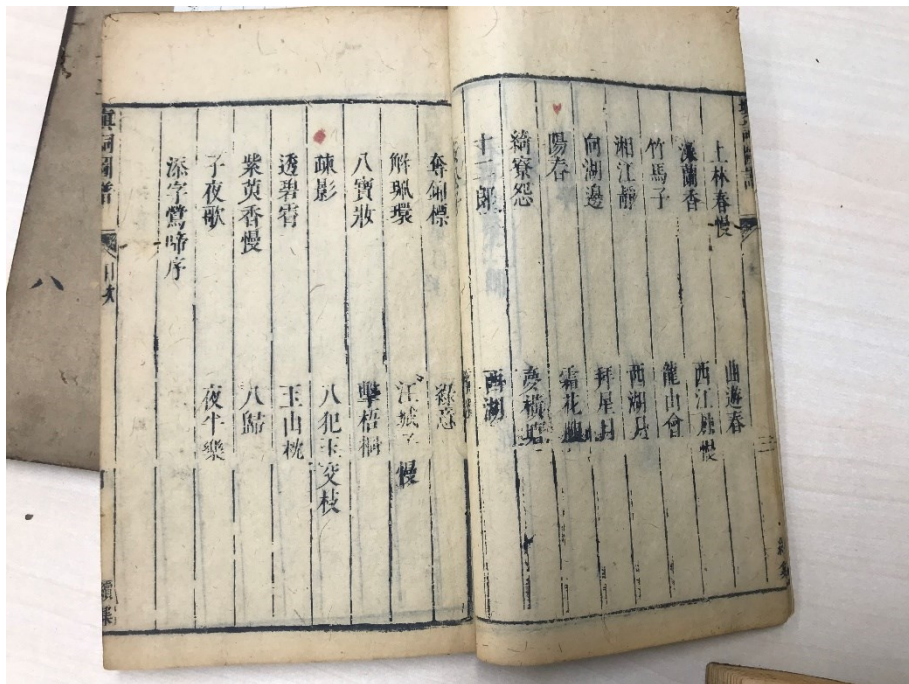 上林春慢 曲遊春
澡蘭香 西江月慢
竹馬子 龍山會
湘江靜 西湖月
向湖邊 拜星月
陽春 霜花腴
綺寮怨 夢橫塘
十二郎 西湖
奪錦標 綠意
解珮環 江城子慢
八寶妝 擊梧桐
疎影 八犯玉交枝
透碧霄 玉山枕
紫萸香慢 八歸
子夜歌 夜半樂
添字鶯啼序
填詞圖譜 目次 續集
八